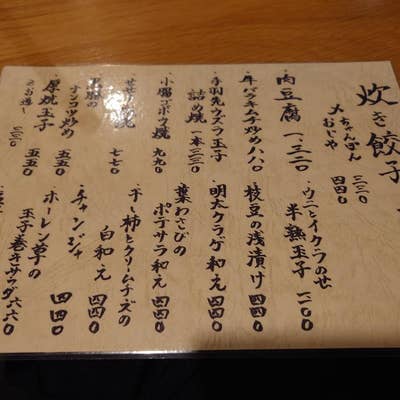 炊き餃子
〆ちゃんぽん 三三〇
おじや 四四〇
肉豆腐 一、三二〇
牛バラキムチ炒め 八八〇
手羽先ウズラ玉子
詰め焼 一本三三〇
小腸コポウ焼 九九〇
焼 七七〇
ナンコツ炒め 五五〇
厚焼玉子 五五〇
ウニとイクラのせ
半熟玉子 一一〇〇
枝豆の浅漬け 四四〇
明太クラゲ和え 四四〇
葉わさびの
ポテサラ和え 四四〇
干し柿とクリームチーズの
白和え 四四〇
チャンジャ 四四〇
ホーレン草の
玉子巻きサラダ 六六〇